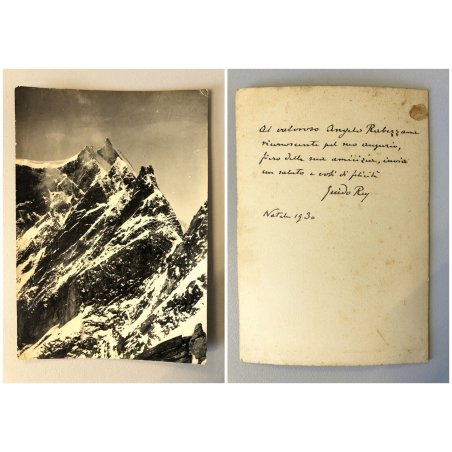 Al valoroso Angelo
riconoscente pel suo augurio,
fiero della sua amicizia, invia
un saluto e voti di felicità
Guido Rey
Natale 1930